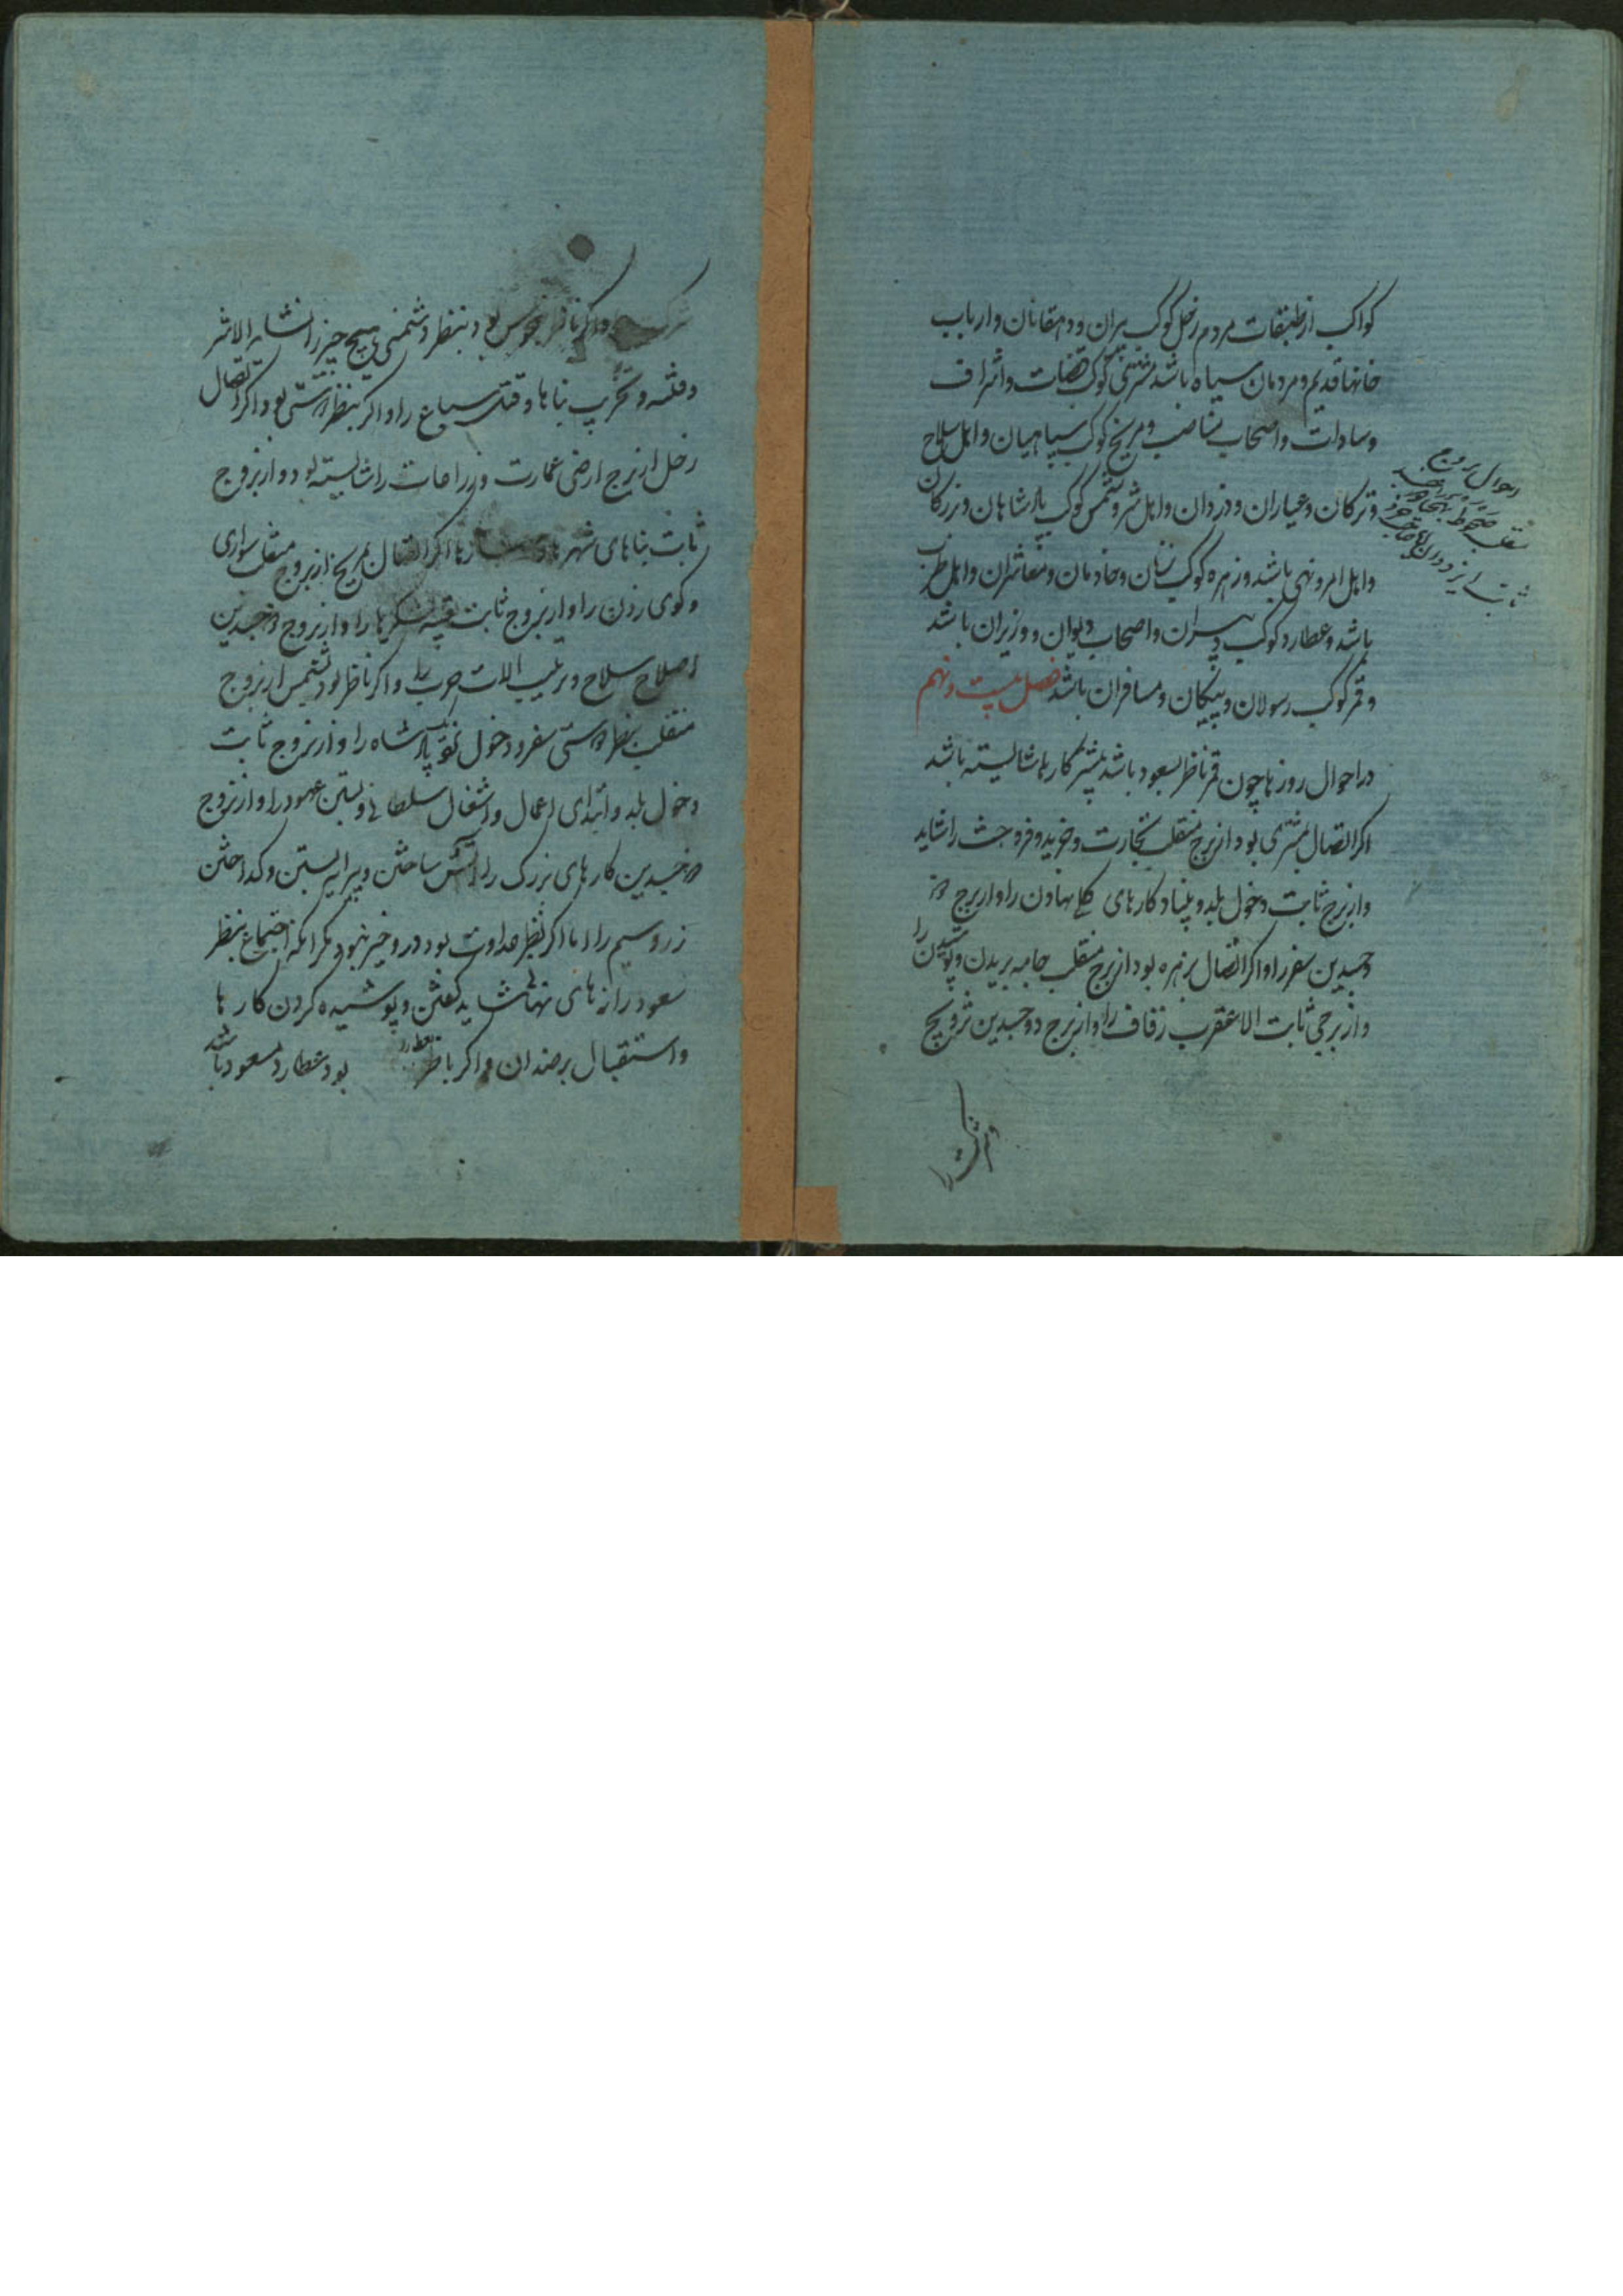 کواکب از طبقات مردم زحل کوکب پیران و دهقانان و ارباب
خانهاء قدیم و مردمان سیاه باشد مشتری کوکب قضات و اشراف
و سادات و اصحاب مناصب و مریخ کوکب سپاهیان و اهل سلاح
و ترکان و عیاران و دزدان و اهل شر و شمس کوکب پادشاهان و بزرکان
و اهل امر و نهی باشد و زهره کوکب زنان و خادمان و معاشران و اهل طرب
باشد و عطارد کوکب دبیران و اصحاب دیوان و وزیران باشد
و قمر کوکب رسولان و پیکان و مسافران باشد فصل بیست و نهم
در احوال روزها چون قمر ناظر بسعود باشد بیشتر کارها شایسته باشد
اکر اتصال بمشتری بود از برج منقلب تجارت و خرید و فروخت را شاید
و از برج ثابت دخول بلد و بنیاد کارهای کلی نهادن را و از برج ذو
جسدین سفر را و اکر اتصال بزهره بود از برج منقلب جامه بریدن و پوشیدن را
و از برجی ثابت الا عقرب زفاف را و از برج ذو جسدین تزویج
و شرکت را
احوال بروج
شرکت را و اکر ناظر نحوس بود بنظر دشمنی هیچ چیز را نشاید الا شر
و فتنه و تخریب بناها و قتل سباع را و اکر بنظر دوستی بود اکر اتصال
زحل از برج ارضی عمارت و زراعات را شایسته بود و از بروج
ثابت بناهای شهرها اکر اتصال بمریخ از بروج منقلب سواری
و کوی زدن را و از بروج ثابت لشکرها را و از بروج ذو جسدین
اصلاح سلاح و ترتیب الات حرب را و اکر ناظر بود بشمس از بروج
منقلب بنظر دوستی سفر و دخول نزد پادشاه را و از بروج ثابت
دخول بلد و ابتدای اعمال و اشغال سلطانی و بستن عهود را و از بروج
ذو جسدین کارهای بزرک را آتش ساختن و پیرایه بستن و کداختن
زر و سیم را اما اکر بنظر عداوت بود در و خیر نبود مکر انکه اجتماع بنظر
سعود رازهای نهان شاید کفتن و پوشیده کردن کارها
و استقبال بر ضد آن و اکر ناظر بعطارد بود عطارد مسعود باشد